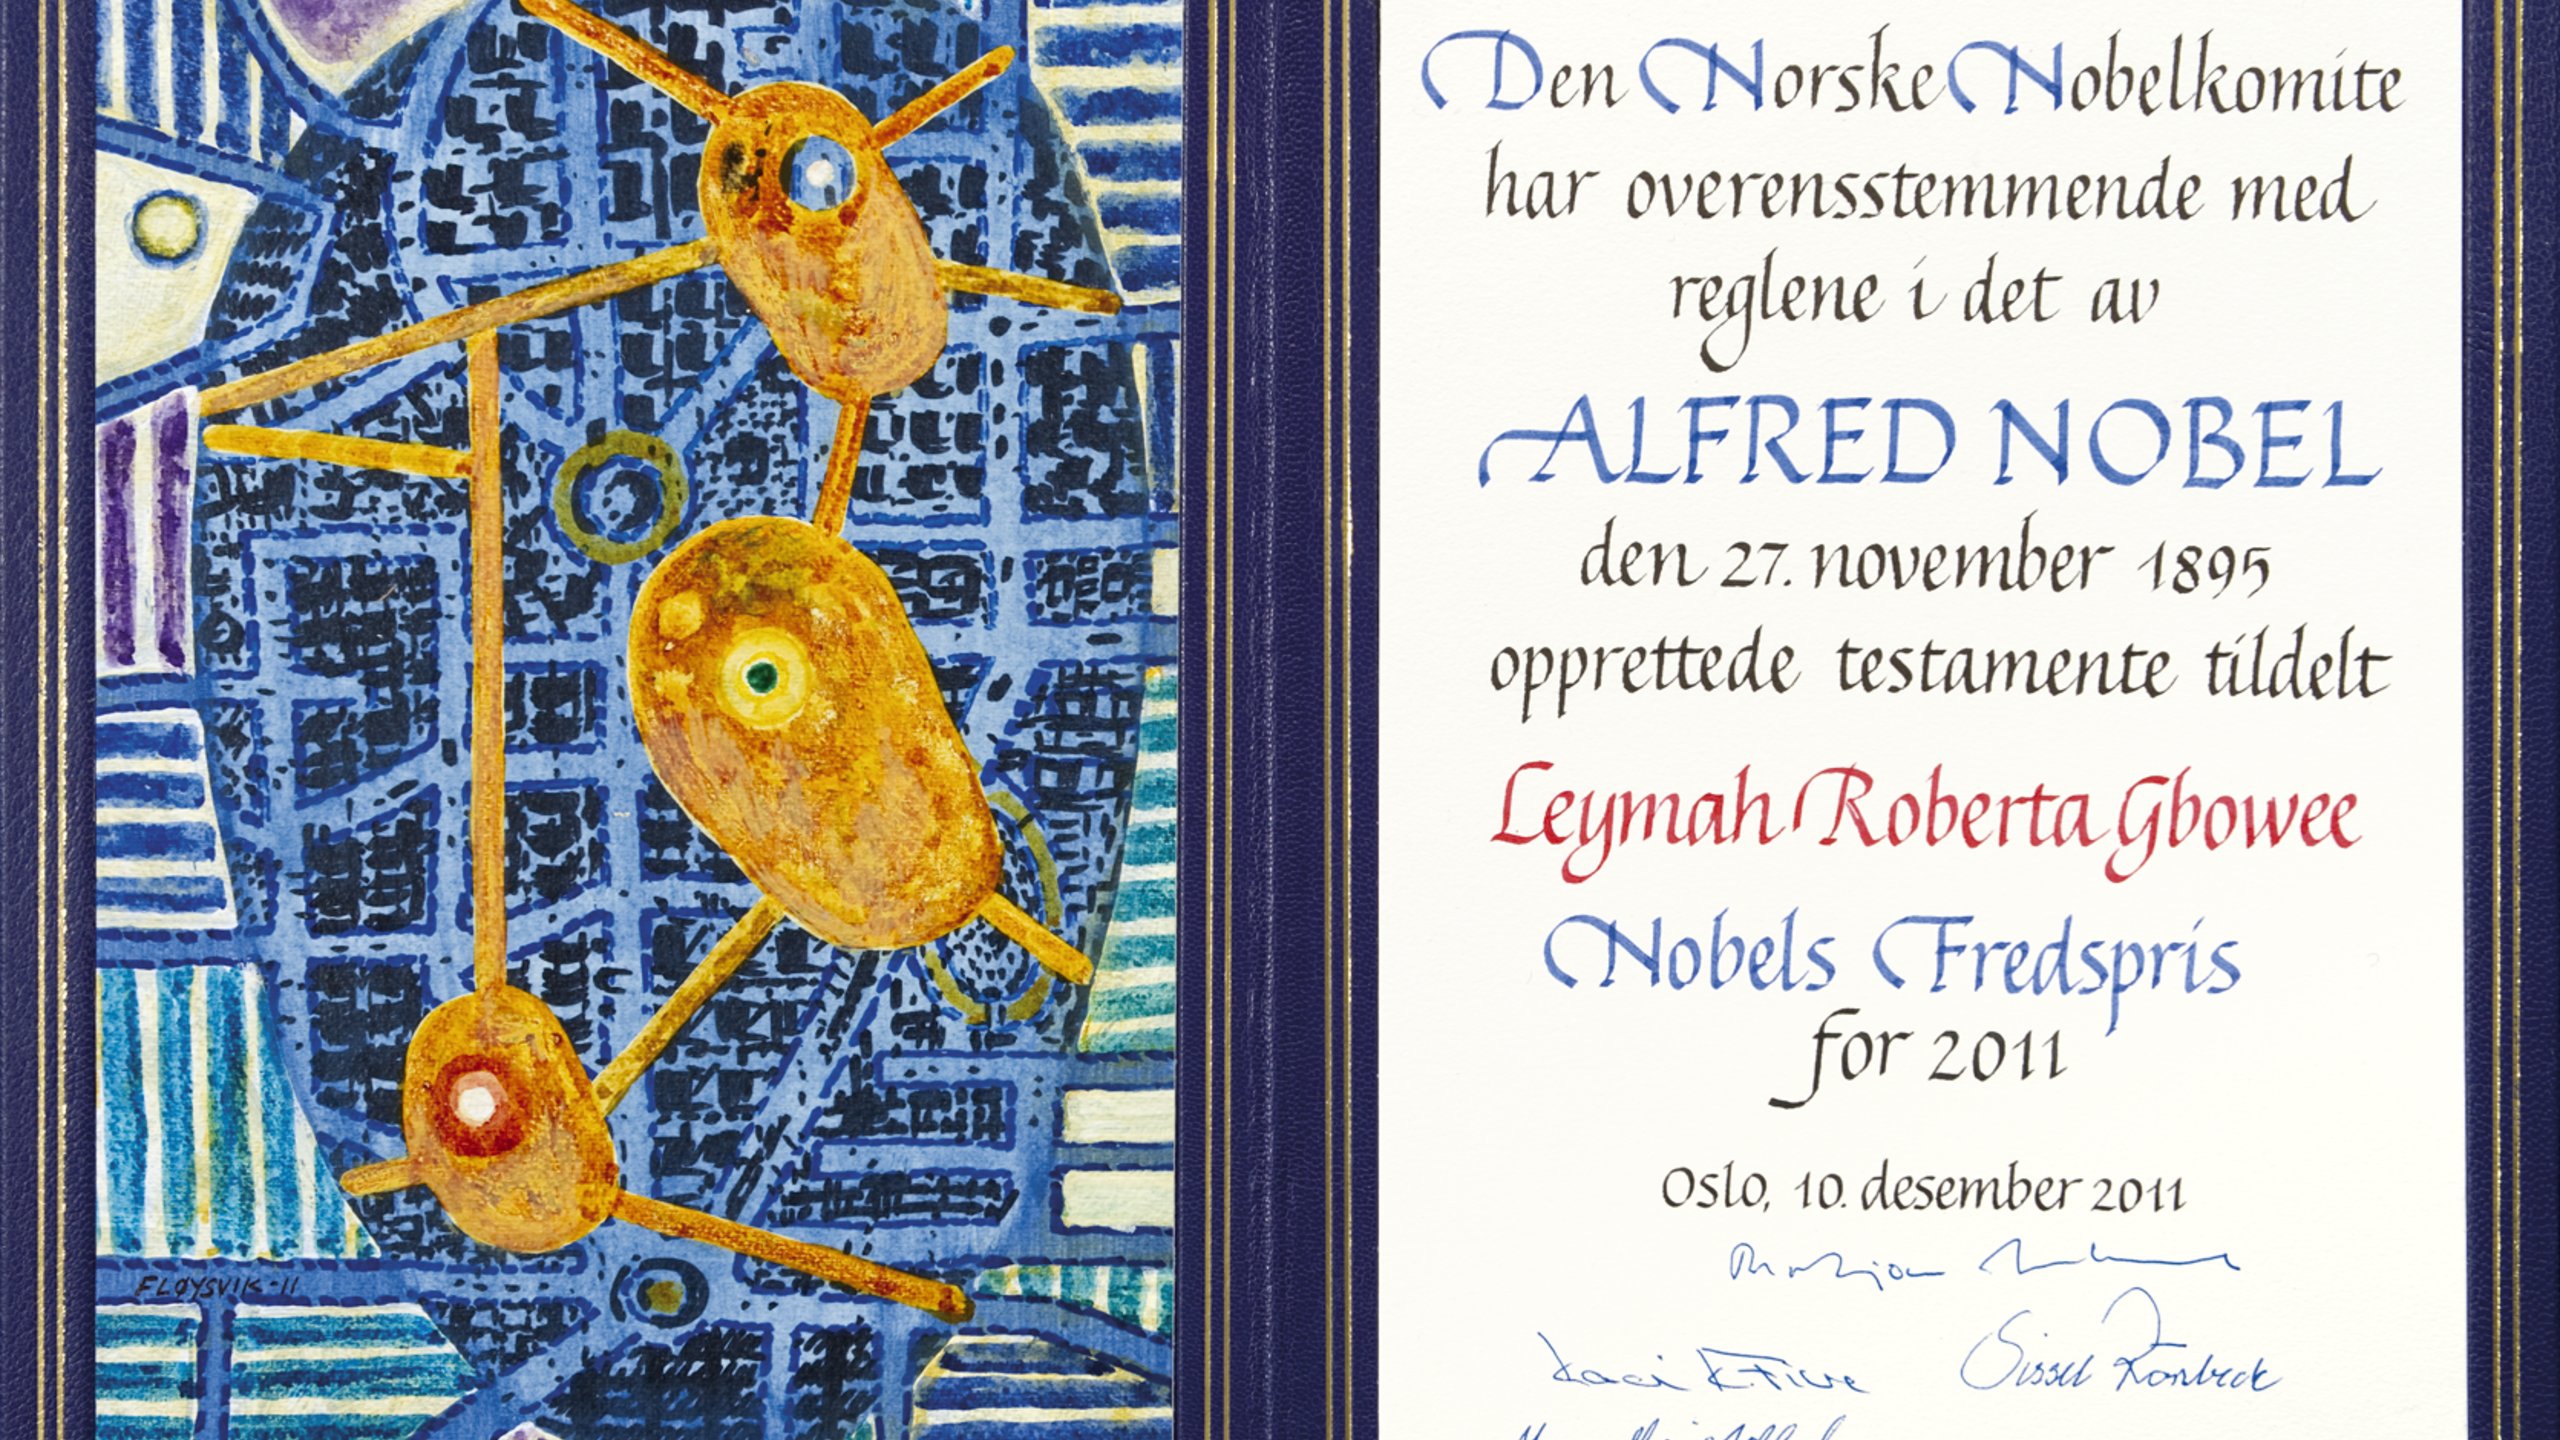 Den Norske Nobelkomite
har overensstemmende med
reglene i det av
ALFRED NOBEL
den 27. november 1895
opprettede testamente tildelt
Leymah Roberta Gbowee
Nobels Fredspris
for 2011
Oslo, 10. desember 2011
Kaci K. Five
Sissel Rønbeck
FLØYSVIK-11